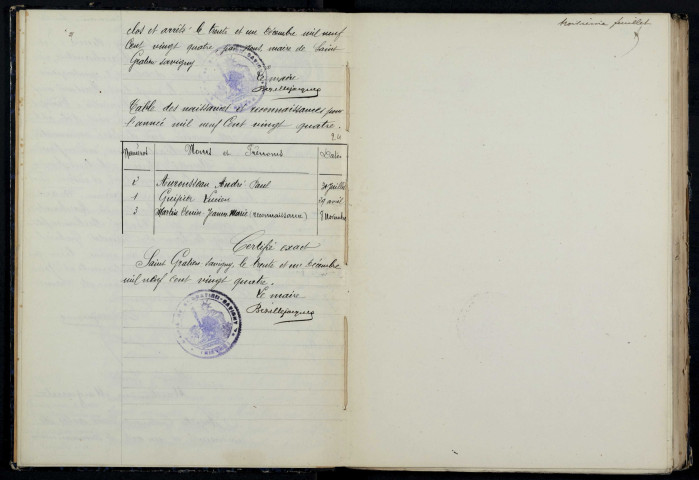 clos et arrêté le trente et un Décembre mil neuf
Cent vingt quatre par nous maire de Saint
Gratien Savigny
Le maire
Table des naissances et reconnaissances pour
l'année mil neuf Cent vingt quatre.
24
Numéros Noms et Prénoms Dates
2 André Paul 30 juillet
1 29 avril
3 Martin Jeanne Marie (reconnaissance) 8 Novembre
Certifié exact
Saint Gratien Savigny, le trente et un Décembre
mil neuf cent vingt quatre.
Le maire
troisième feuillet